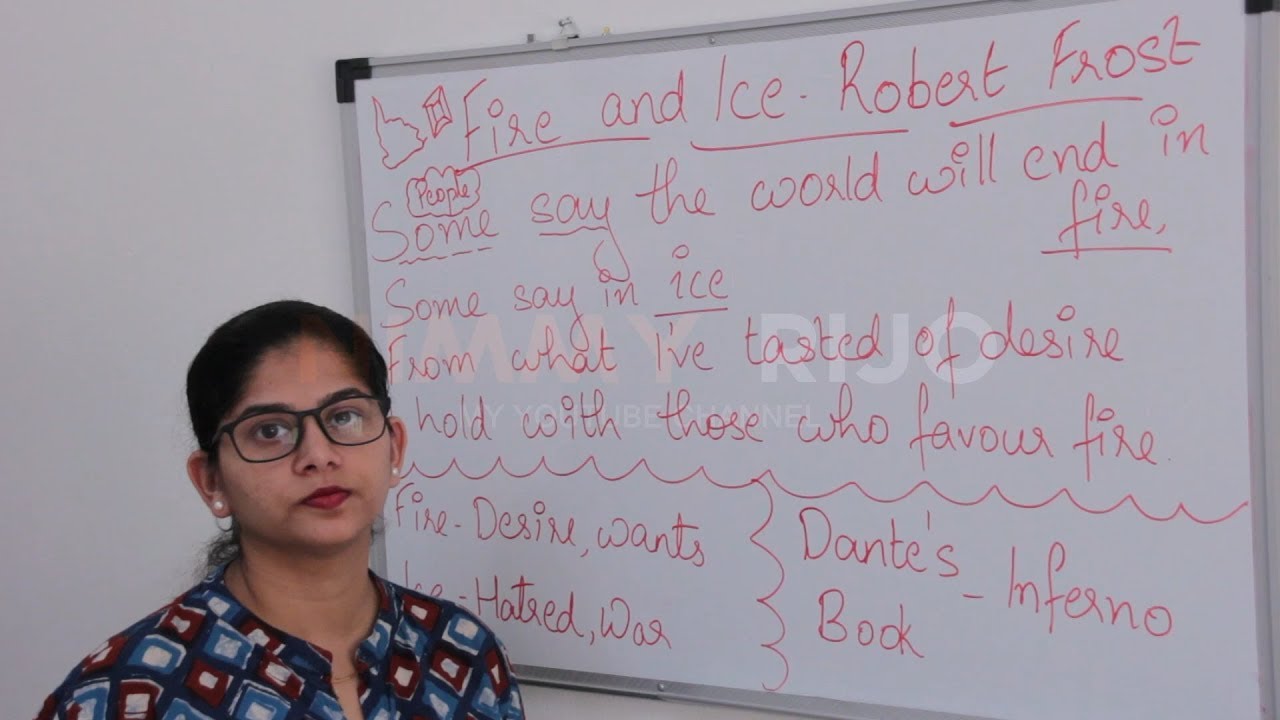 Fire and Ice - Robert Frost
People
Some say the world will end in
fire,
Some say in ice
From what I've tasted of desire
hold with those who favour fire.
Fire - Desire, wants
Ice - Hatred, War
Dante's
Book - Inferno
RIJO
MY YOUTUBE CHANNEL